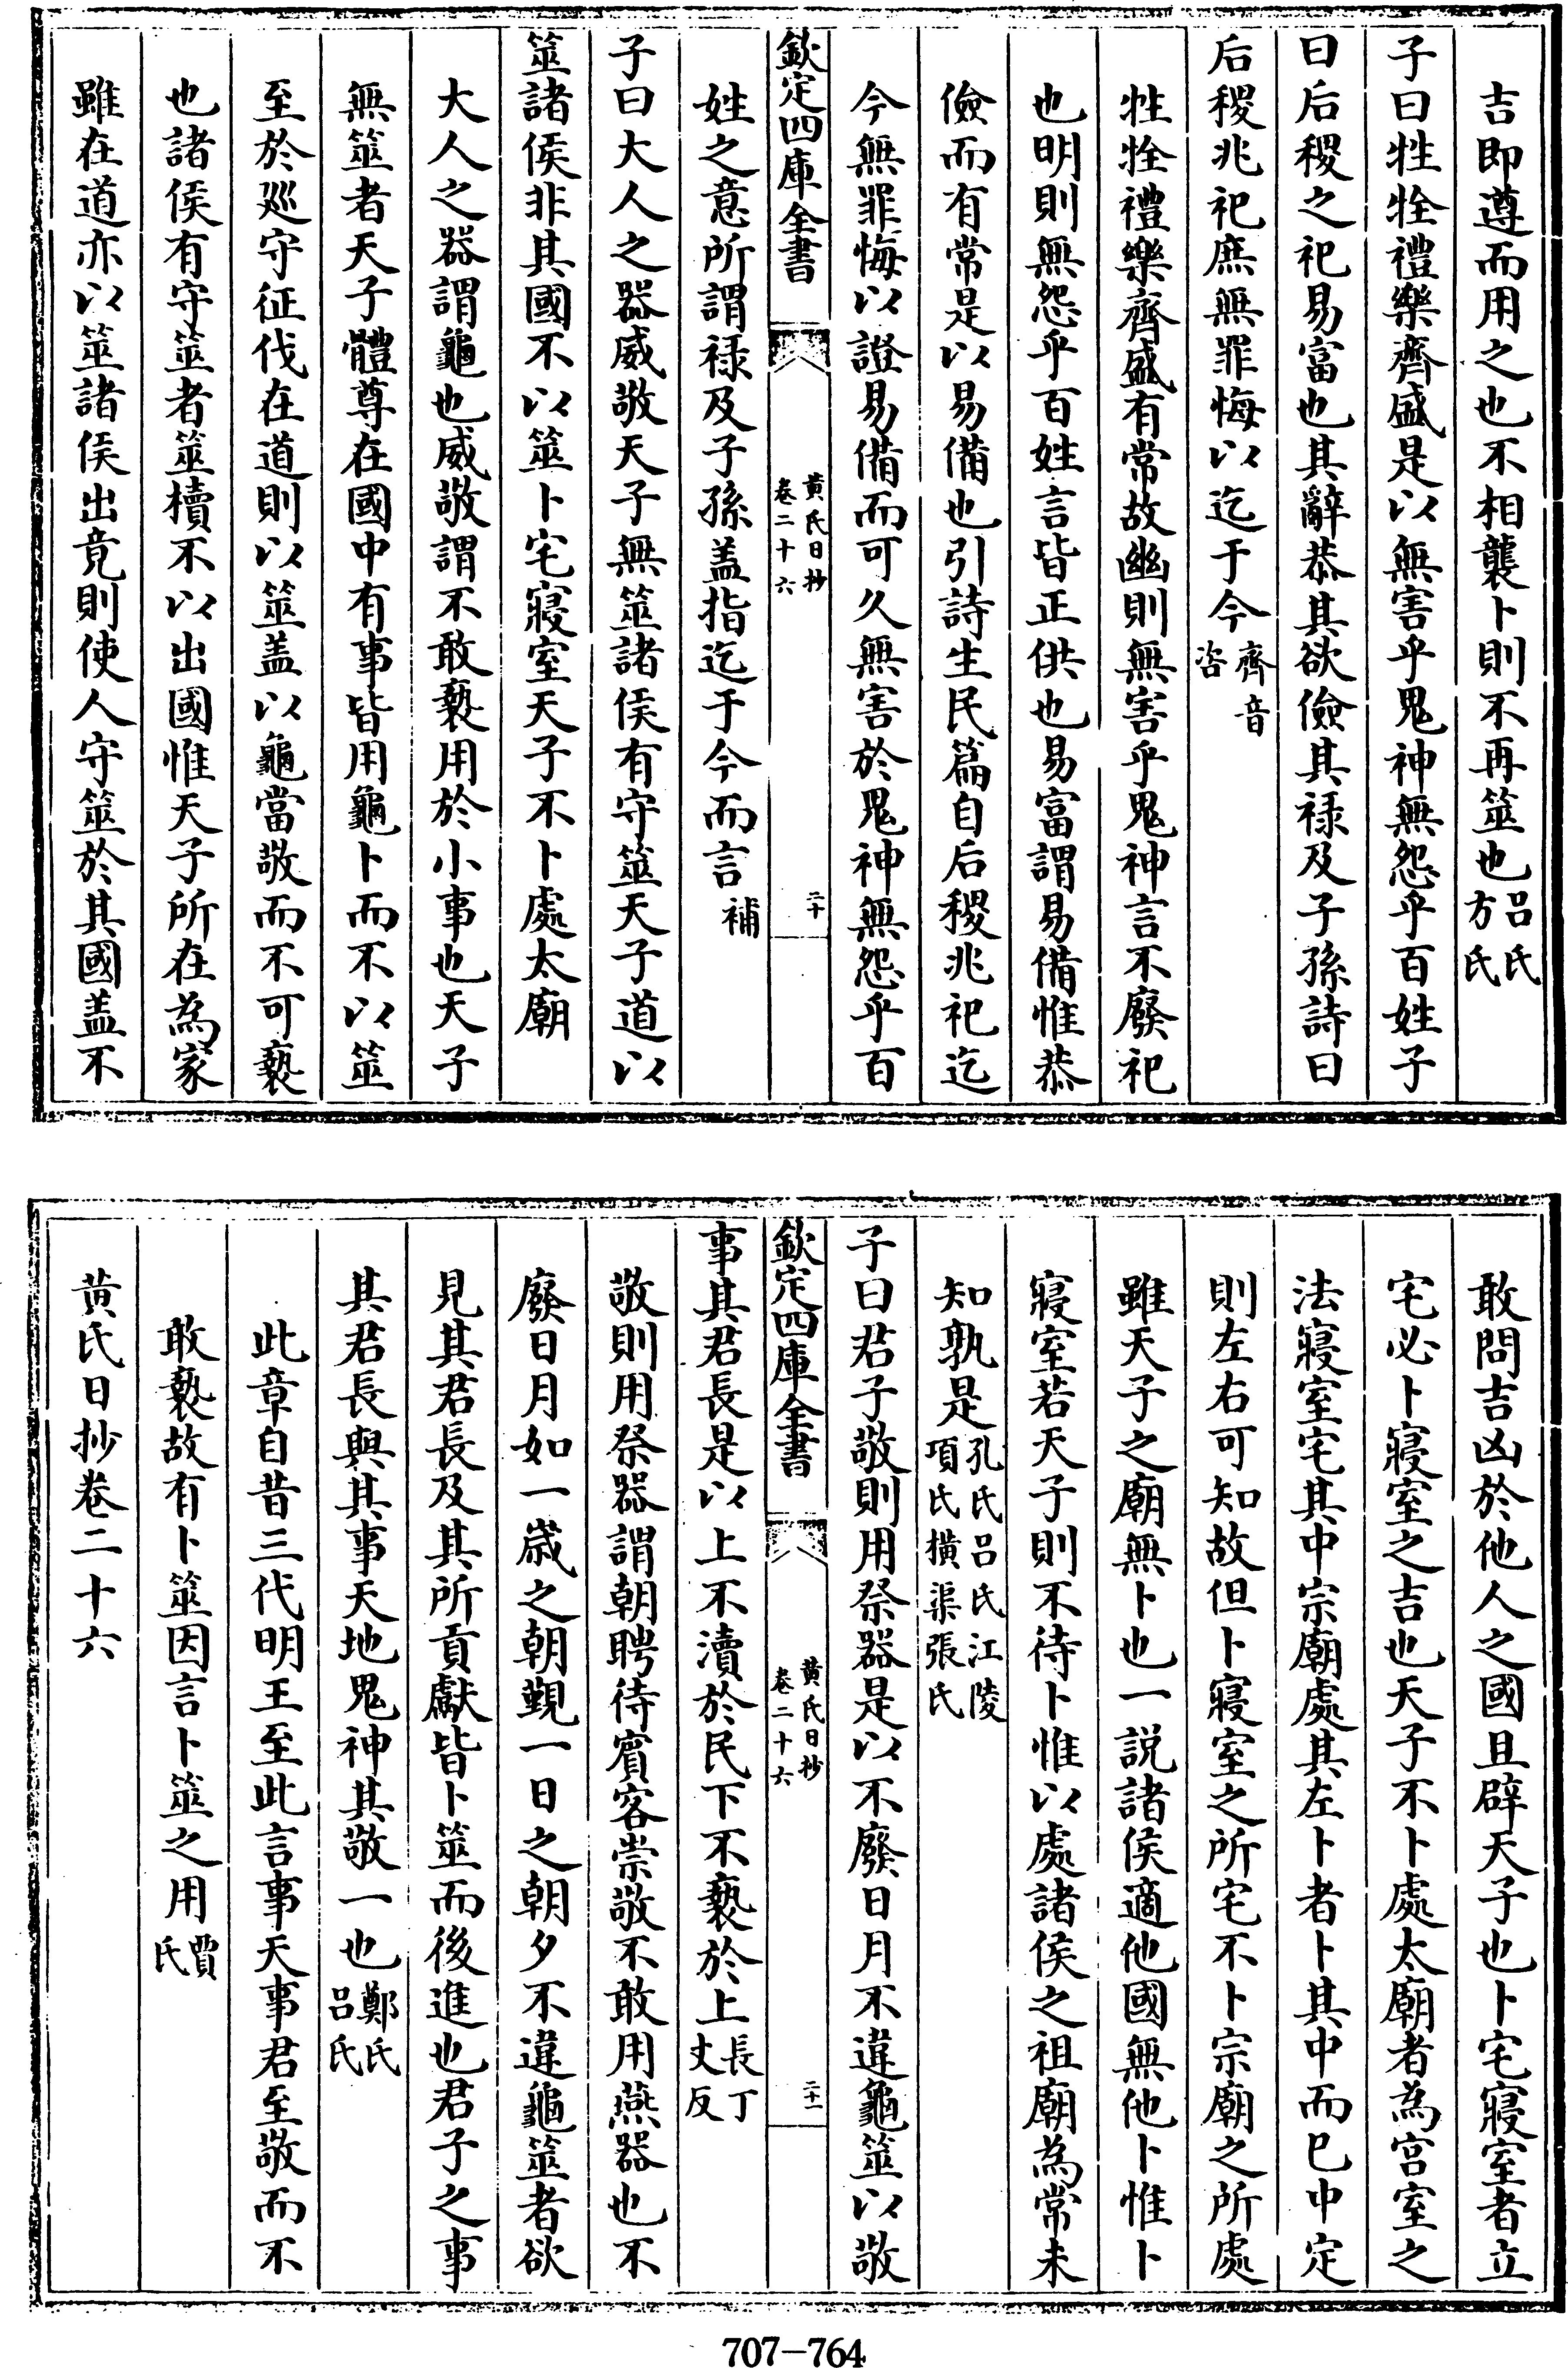 吉即遵而用之也不相襲卜則不再筮也吕氏方氏
子曰牲牷禮樂齊盛是以無害乎鬼神無怨乎百姓子
曰后稷之祀易富也其辭恭其欲儉其禄及子孫詩曰
后稷兆祀庶無罪悔以迄于今齊音咨
牲牷禮樂齊盛有常故幽則無害乎鬼神言不廢祀
也明則無怨乎百姓言皆正供也易富謂易備惟恭
儉而有常是以易備也引詩生民篇自后稷兆祀迄
今無罪悔以證易備而可久無害於鬼神無怨乎百
欽定四庫全書
黄氏日抄
卷二十六
二十
姓之意所謂禄及子孫盖指迄于今而言補
子曰大人之器威敬天子無筮諸侯有守筮天子道以
筮諸侯非其國不以筮卜宅寢室天子不卜處太廟
大人之器謂龜也威敬謂不敢褻用於小事也天子
無筮者天子體尊在國中有事皆用龜卜而不以筮
至於廵守征伐在道則以筮盖以龜當敬而不可褻
也諸侯有守筮者筮櫝不以出國惟天子所在為家
雖在道亦以筮諸侯出竟則使人守筮於其國盖不
敢問吉凶於他人之國且辟天子也卜宅寢室者立
宅必卜寢室之吉也天子不卜處太廟者為宫室之
法寢室宅其中宗廟處其左卜者卜其中而已中定
則左右可知故但卜寢室之所宅不卜宗廟之所處
雖天子之廟無卜也一説諸侯適他國無他卜惟卜
寢室若天子則不待卜惟以處諸侯之祖廟為常未
知孰是孔氏吕氏江陵項氏横渠張氏
子曰君子敬則用祭器是以不廢日月不違龜筮以敬
欽定四庫全書
黄氏日抄
卷二十六
二十一
事其君長是以上不瀆於民下不褻於上長丁丈反
敬則用祭器謂朝聘待賓客崇敬不敢用燕器也不
廢日月如一嵗之朝覲一日之朝夕不違龜筮者欲
見其君長及其所貢獻皆卜筮而後進也君子之事
其君長與其事天地鬼神其敬一也鄭氏吕氏
此章自昔三代明王至此言事天事君至敬而不
敢褻故有卜筮因言卜筮之用賈氏
黄氏日抄卷二十六
707-764